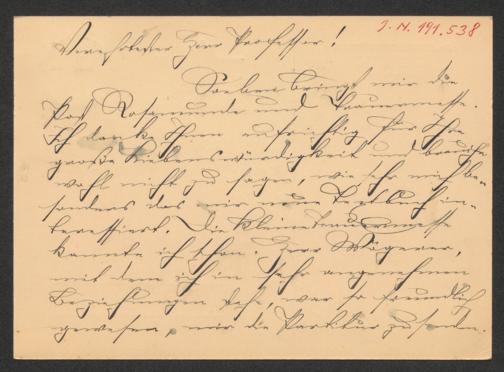 J. N. 191.538
Verehrtester Herr Professor!
Soeben bringt mir die
Post Rosamunde und Trauermesse.
Ich danke Ihnen aufrichtig für Ihre
große Liebenswürdigkeit und brauche
wohl nicht zu sagen, wie sehr mich be-
sonders das mir neue Textbuch in-
teressiert. Die kleine Trauermesse
kannte ich schon. Herr
mit dem ich in sehr angenehmen
Beziehungen stehe, war so freundlich
gewesen, mir die Partitur zu senden.